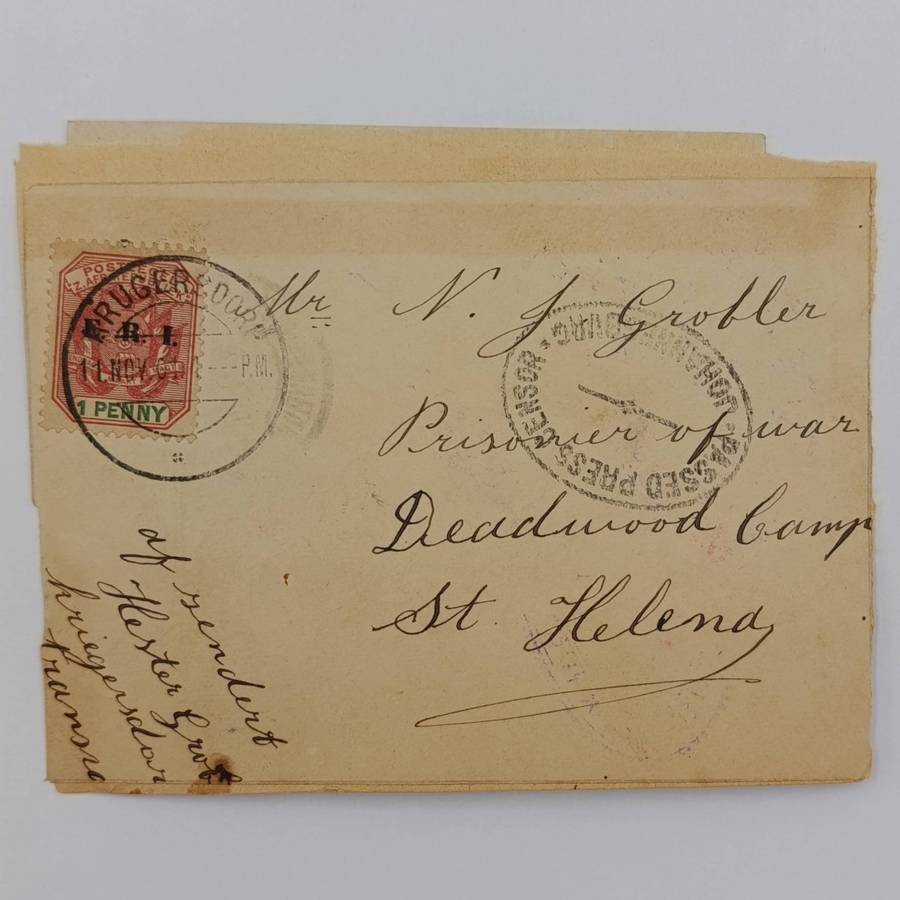 POSTZEGEL
Z. AFR. REPUBLIEK
E. R. I.
1 PENNY
KRUGERSDORP
11 NOV
P.M.
Mr N. J Grobler
PASSED PRESS CENSOR
JOHANNESBURG
Prisonier of war
Deadwood Camp
St. Helena
af sendert
Hester Grob
kriegersdor
transva